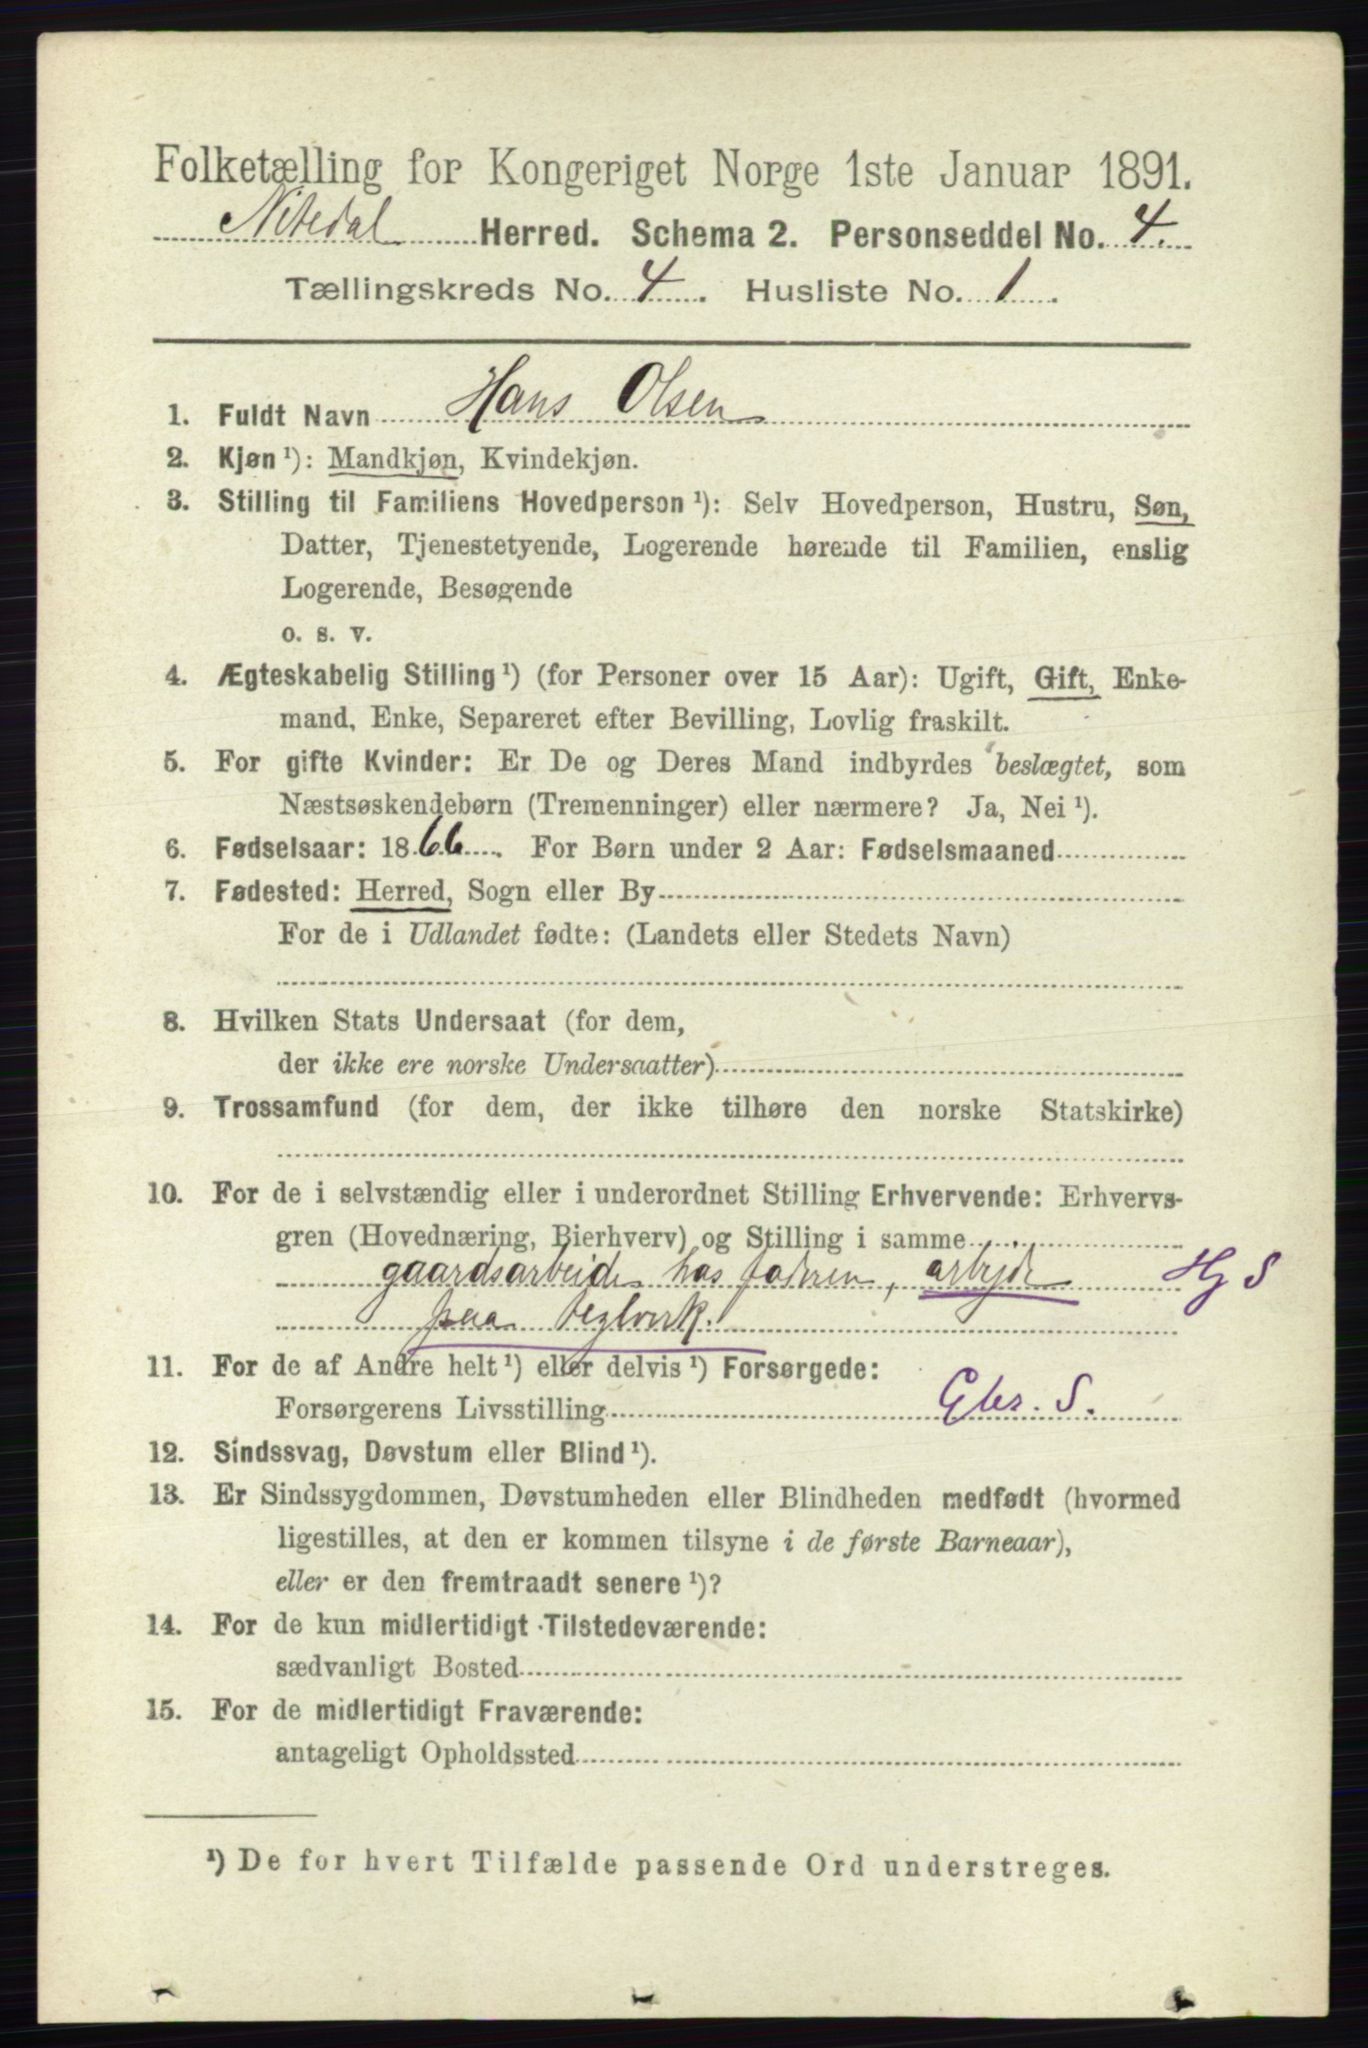 Folketælling for Kongeriget Norge 1ste Januar 1891.
Nitedal Herred. Schema 2. Personseddel No. 4.
Tællingskreds No. 4. Husliste No. 1.
1. Fuldt Navn Hans Olsen
2. Kjøn¹): Mandkjøn, Kvindekjøn.
3. Stilling til Familiens Hovedperson¹): Selv Hovedperson, Hustru, Søn,
Datter, Tjenestetyende, Logerende hørende til Familien, enslig
Logerende, Besøgende
o. s. v.
4. Ægteskabelig Stilling¹) (for Personer over 15 Aar): Ugift, Gift, Enke-
mand, Enke, Separeret efter Bevilling, Lovlig fraskilt.
5. For gifte Kvinder: Er De og Deres Mand indbyrdes beslægtet, som
Næstsøskendebørn (Tremenninger) eller nærmere? Ja, Nei¹).
6. Fødselsaar: 1866. For Børn under 2 Aar: Fødselsmaaned
7. Fødested: Herred, Sogn eller By
For de i Udlandet fødte: (Landets eller Stedets Navn)
8. Hvilken Stats Undersaat (for dem,
der ikke ere norske Undersaatter)
9. Trossamfund (for dem, der ikke tilhøre den norske Statskirke)
10. For de i selvstændig eller i underordnet Stilling Erhvervende: Erhvervs-
gren (Hovednæring, Bierhverv) og Stilling i samme
gaardsarbeide hos faderen, arbyde Hg S
paa teglverk.
11. For de af Andre helt¹) eller delvis¹) Forsørgede:
Forsørgerens Livsstilling S.
12. Sindssvag, Døvstum eller Blind¹).
13. Er Sindssygdommen, Døvstumheden eller Blindheden medfødt (hvormed
ligestilles, at den er kommen tilsyne i de første Barneaar),
eller er den fremtraadt senere¹)?
14. For de kun midlertidigt Tilstedeværende:
sædvanligt Bosted
15. For de midlertidigt Fraværende:
antageligt Opholdssted
¹) De for hvert Tilfælde passende Ord understreges.